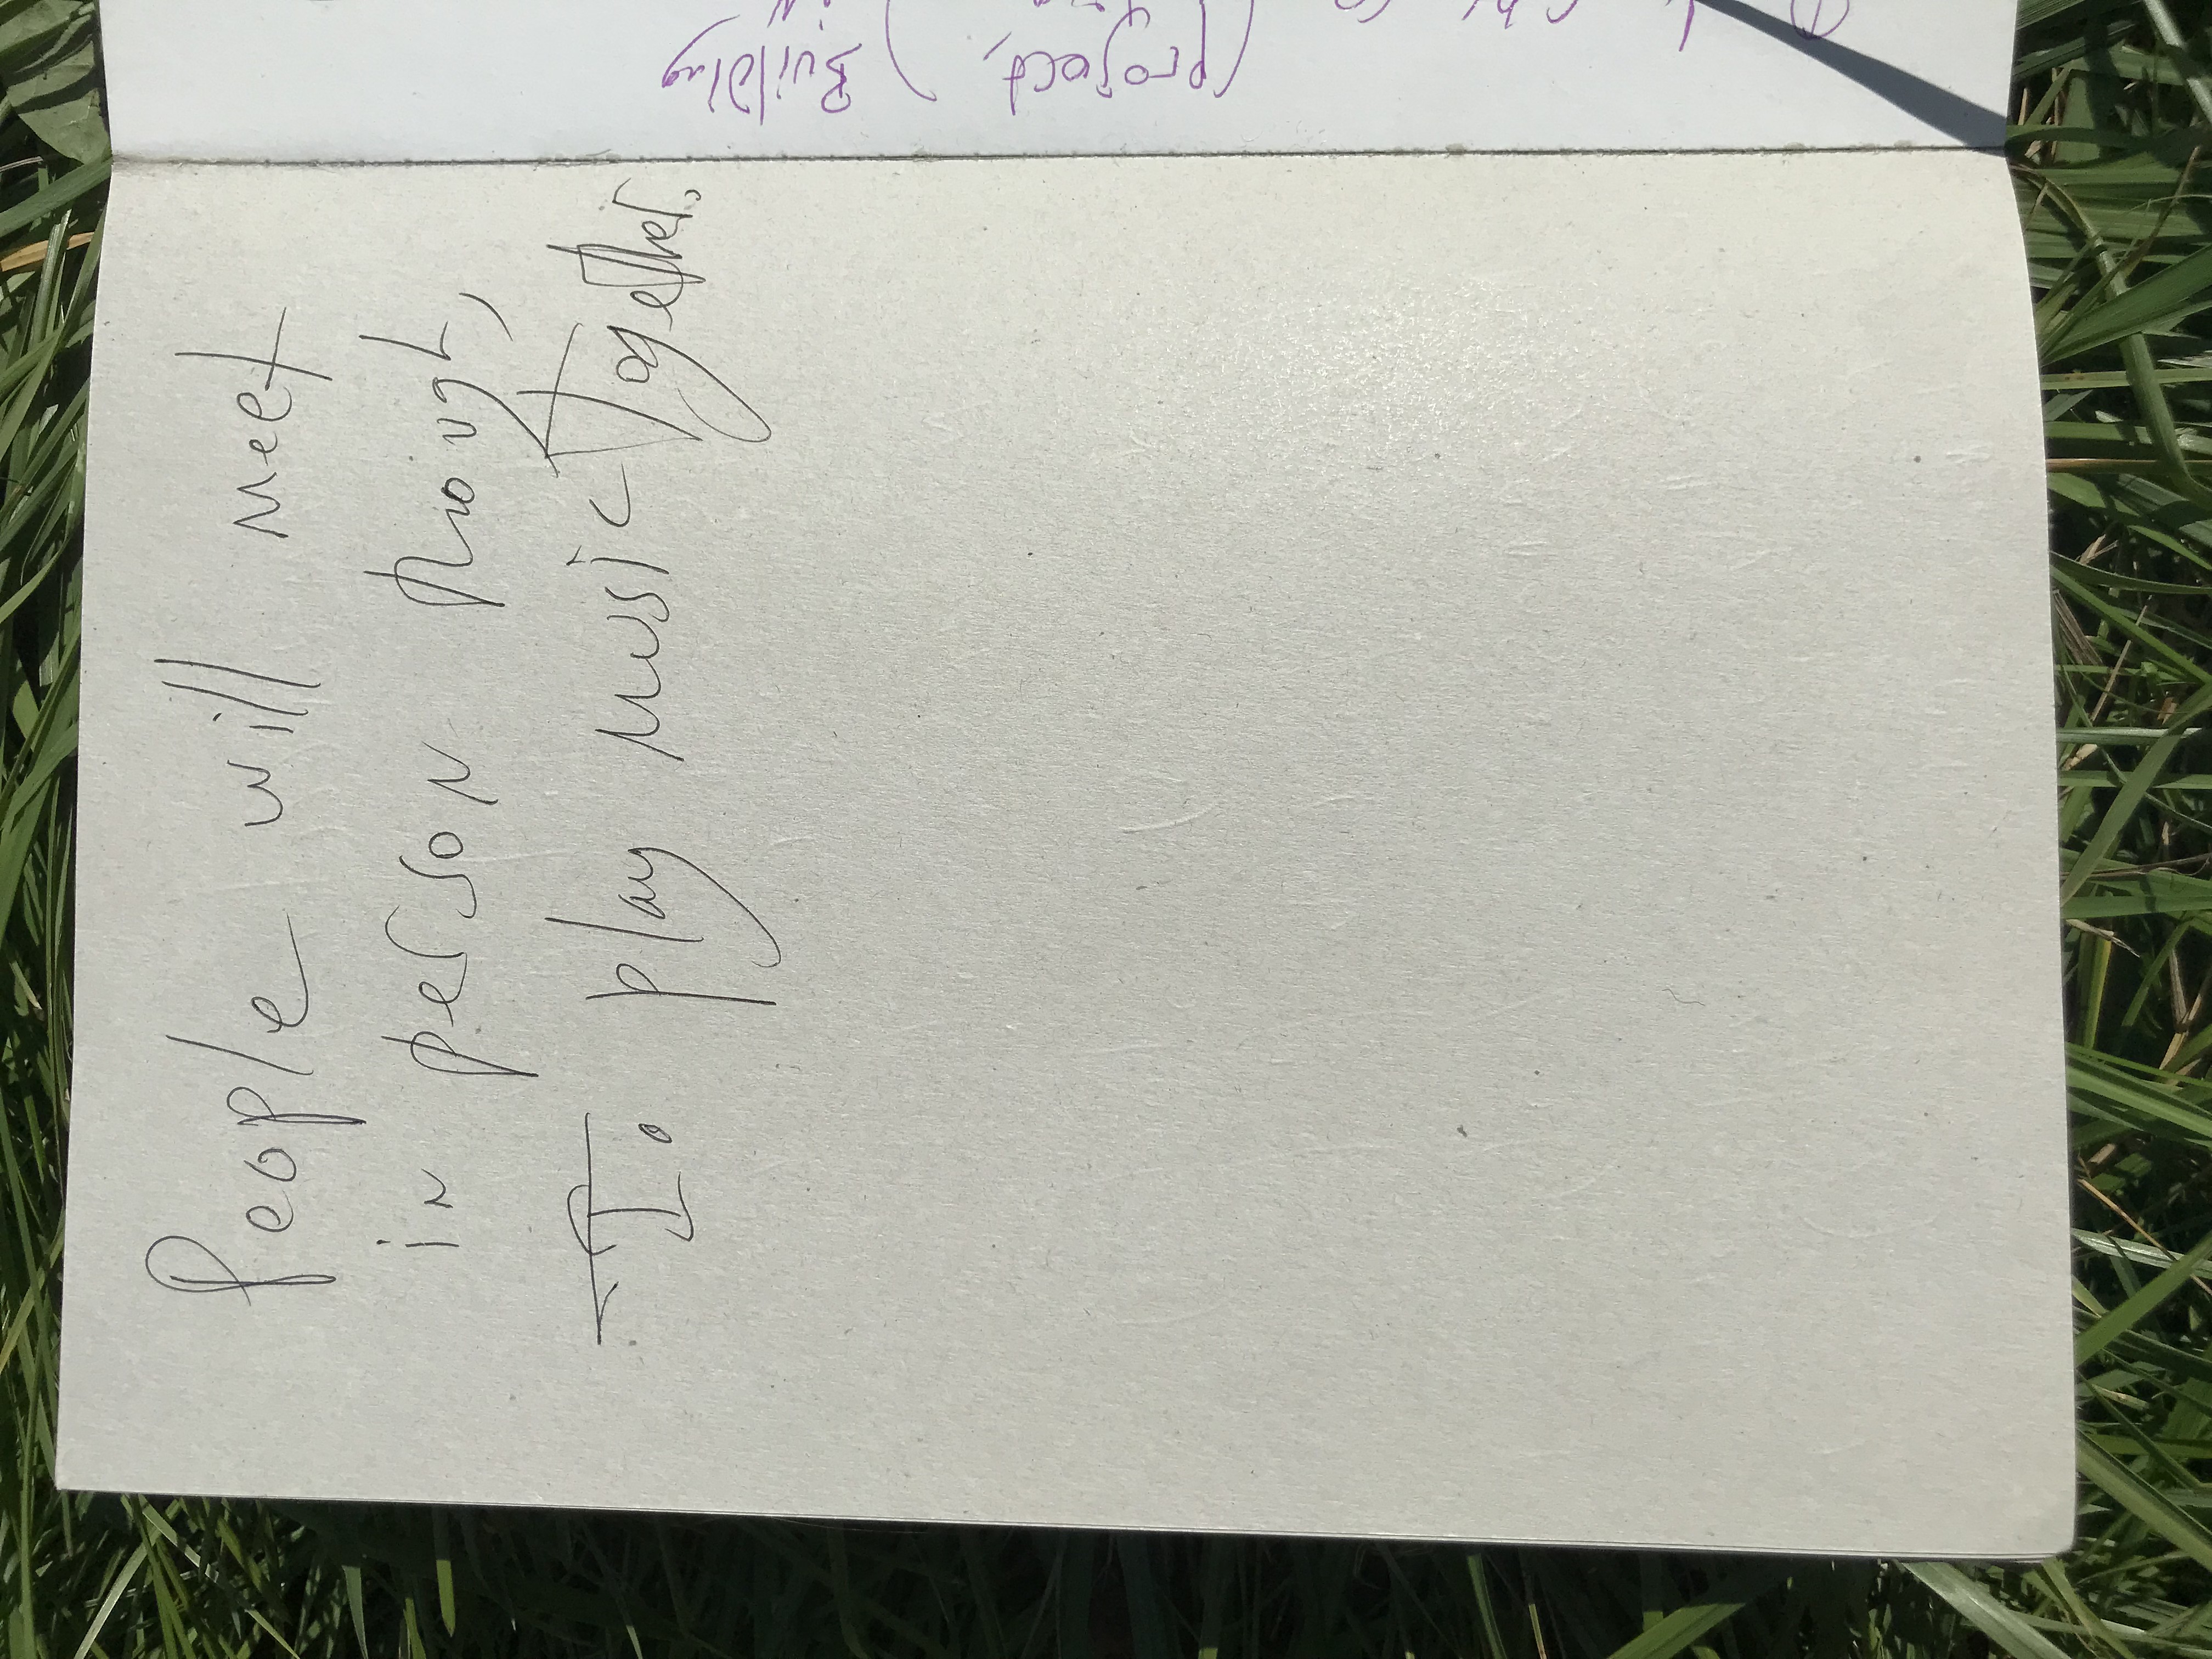 People will meet
in person though,
To play music Together.
(project,) Building
in